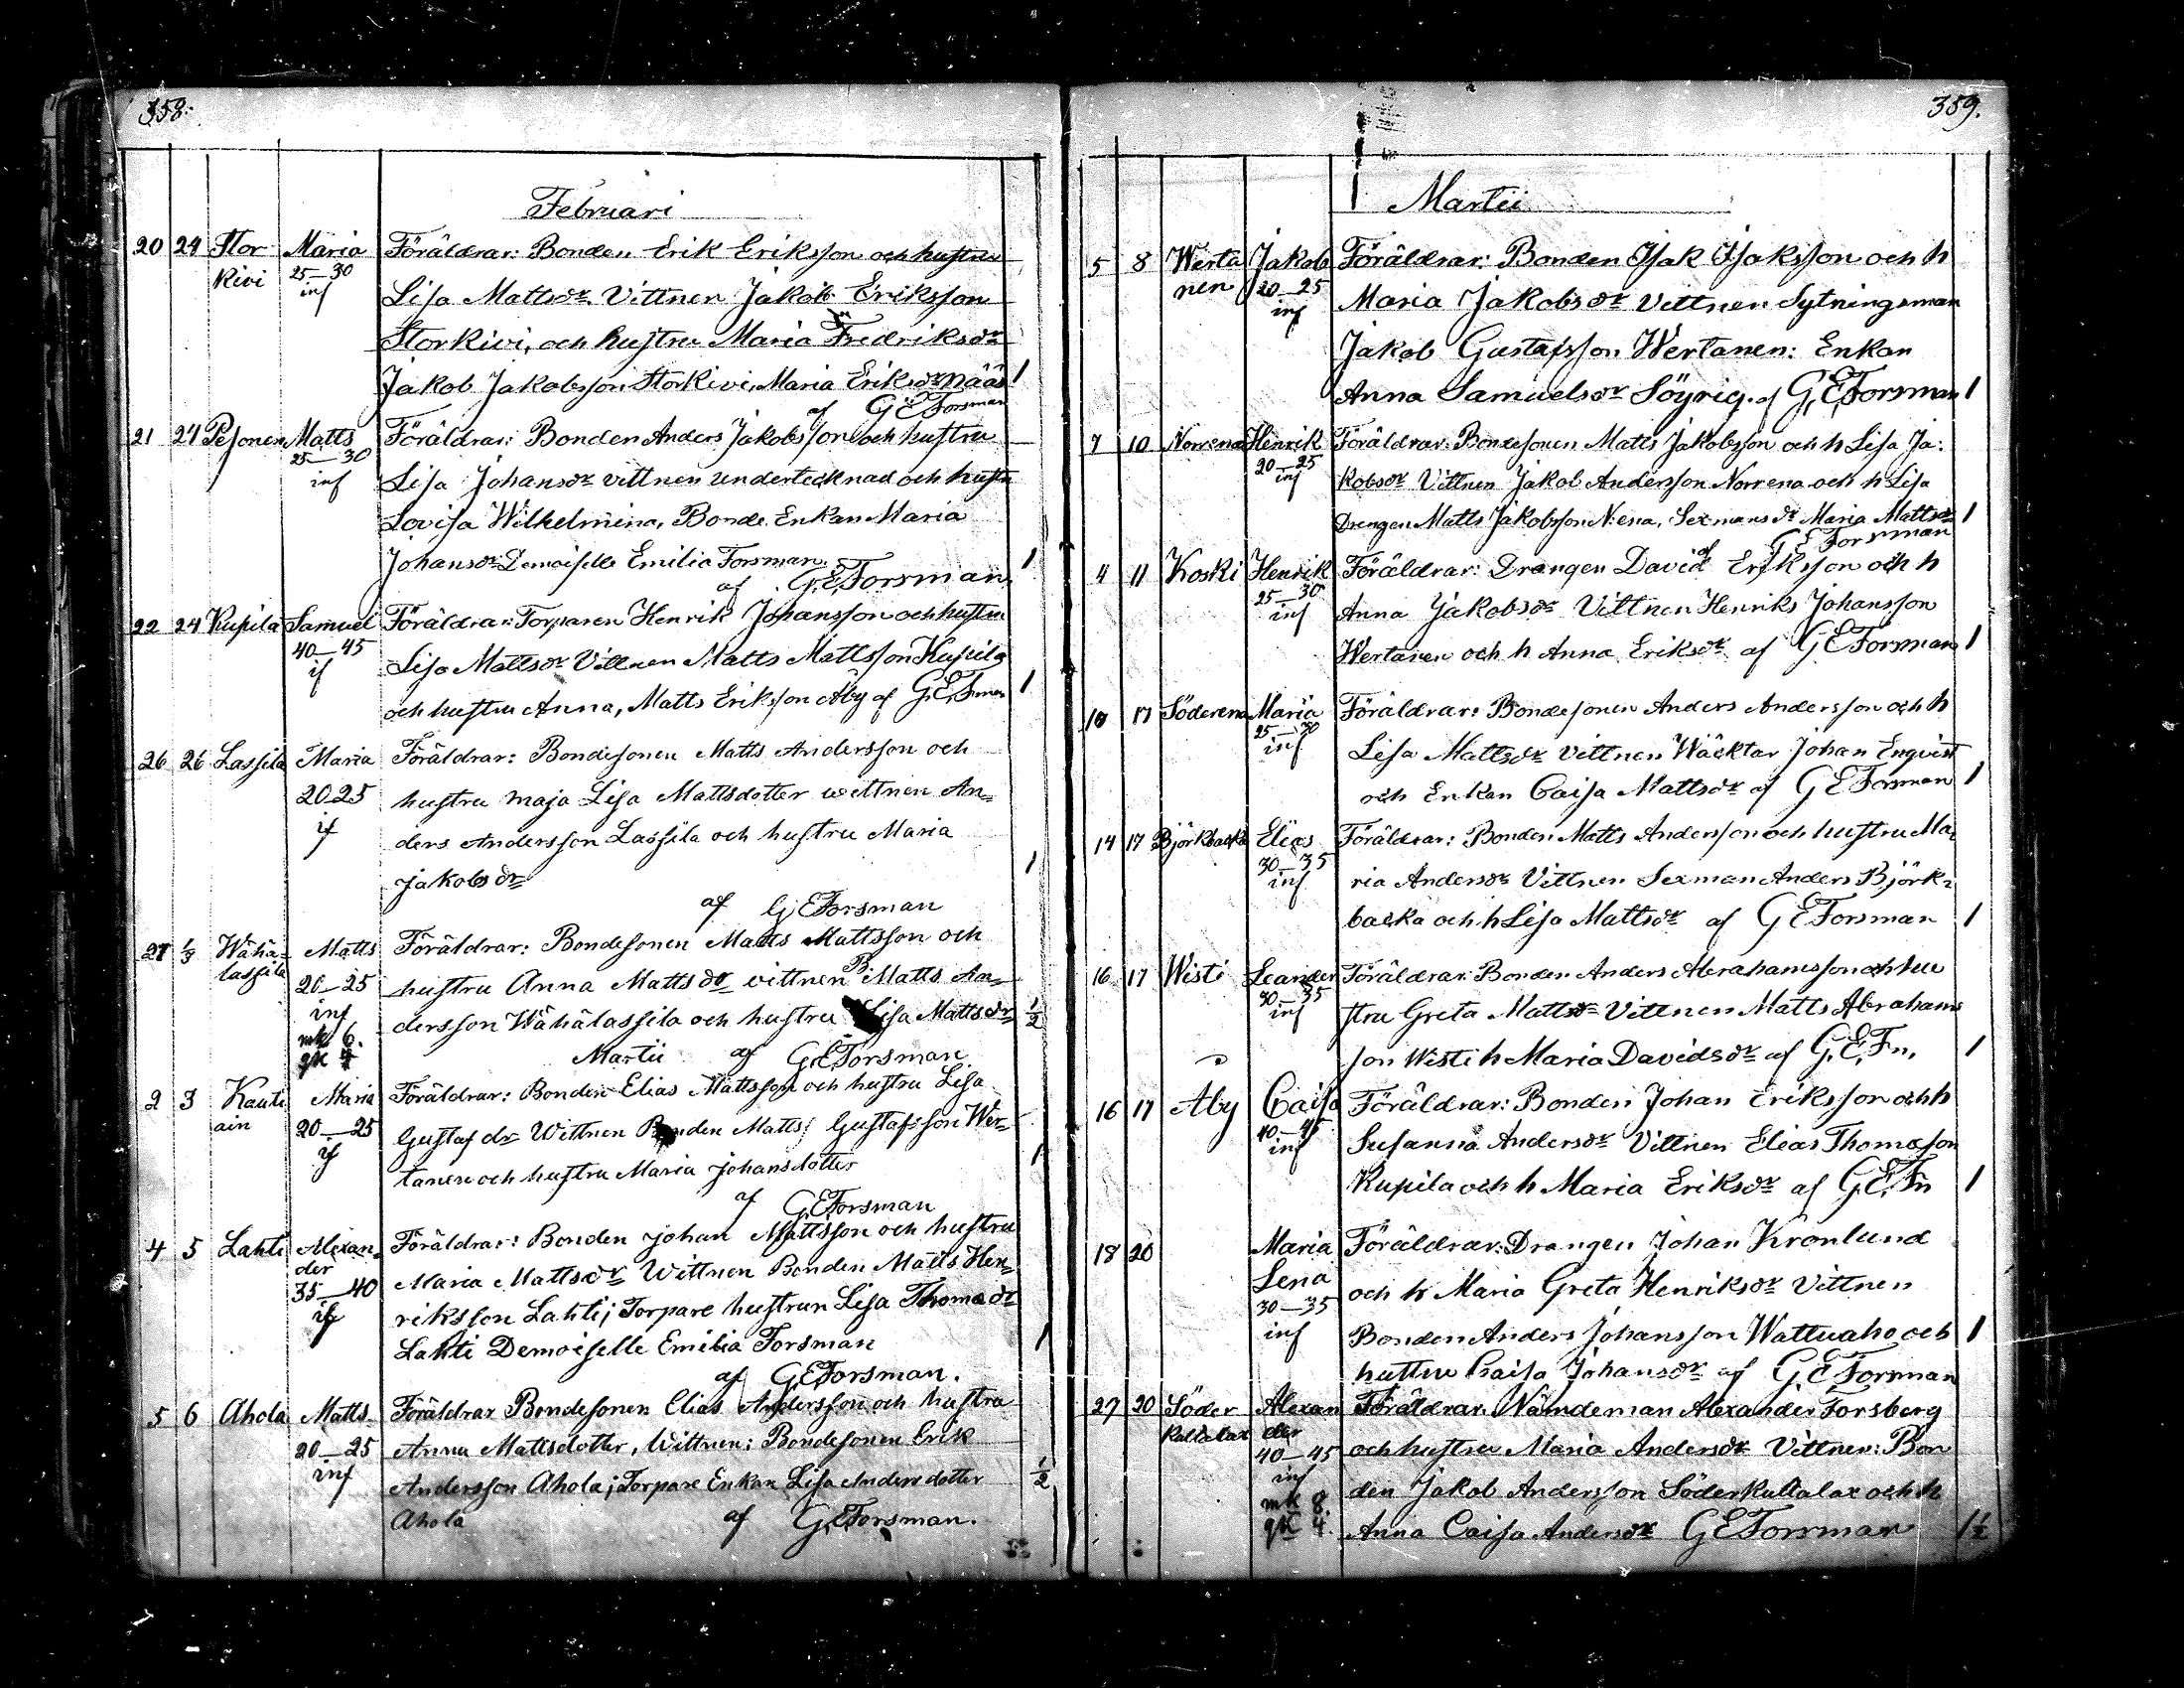 358.
Februari
20 24 Stor Maria Föräldrar: Bonden Erik Eriksson och hustru
kivi 25–30 inf Lisa Mattsdr Vittnen Jakob Eriksson
Storkivi, och hustru Maria Fredriksdr
Jakob Jakobsson Storkivi, Maria Eriksdr Nääs 1
af G E Forsman
21 24 Pesonen Matts Föräldrar: Bonden Anders Jakobsson och hustru
25–30 inf Lisa Johansdr vittnen undertecknad och hustru
Lovisa Wilhelmina, Bonde Enkan Maria
Johansdr Demoiselle Emilia Forsman. 1
af G. E. Forsman
22 24 Kupila Samuel Föräldrar: Torparen Henrik Johansson och hustru
40–45 if Lisa Mattsdr Vittnen Matts Mattsson Kupila
och hustru Anna, Matts Eriksson Aby af G. E. Fman 1
26 26 Lassila Maria Föräldrar: Bondesonen Matts Andersson och
20 25 hustru maja Lisa Mattsdotter wittnen An=
if ders Andersson Lassila och hustru Maria
Jakobsdr 1
af G E Forsman
27 1/3 Wähä= Matts Föräldrar: Bondesonen Matts Mattsson och
lassila 20–25 hustru Anna Mattsdr vittnen B. Matts An=
inf dersson Wähälassila och hustru Lisa Mattsdr 1/2
mk 6.
qk 4 Martii af G. E. Forsman
2 3 Kauti Maria Föräldrar: Bonden Elias Mattsson och hustru Lisa
ain 20–25 Gustafdr Wittnen Bonden Matts Gustafsson Wer=
if tanen och hustru Maria Johansdotter 1
af G. E. Forsman
4 5 Lahti Alexan= Föräldrar: Bonden Johan Mattsson och hustru
der 35–40 Maria Mattsdr Wittnen Bonden Matts Hen=
if riksson Lahti; Torpare hustrun Lisa Thomasdr
Lahti Demoiselle Emilia Forsman 1
af G E Forsman.
5 6 Ahola Matts Föräldrar Bondesonen Elias Andersson och hustru
20–25 Anna Mattsdotter, Wittnen: Bondesonen Erik
inf Andersson Ahola; Torpare Enkan Lisa Andersdotter 1/2
Ahola af G. E. Forsman.
359.
Martii
5 8 Werta Jakob Föräldrar: Bonden Isak Isaksson och h
nen 20–25 inf Maria Jakobsdr Vittnen Sytningsman
Jakob Gustafsson Wertanen: Enkan
Anna Samuelsdr Söyrig. af G. E. Forsman 1
7 10 Norrena Henrik Föräldrar: Bondesonen Matts Jakobsson och h Lisa Ja:
20–25 inf kobsdr Vittnen Jakob Andersson Norrena och h Lisa
Drengen Matts Jakobsson N:ena, Sexmansdr Maria Mattsdr 1
af G E Forsman
4 11 Koski Henrik Föräldrar: Drangen David Eriksson och h
25–30 inf Anna Jakobsdr Vittnen Henriks Johansson
Wertanen och h Anna Eriksdr af G E Forsman 1
10 17 Söderena Maria Föräldrar: Bondesonen Anders Andersson och h
25–30 inf Lisa Mattsdr Vittnen Wäcktar Johan Enqvist
och Enkan Caisa Mattsdr af G E Forsman 1
14 17 Björkbacka Elias Föräldrar: Bonden Matts Andersson och hustru Ma=
30–35 inf ria Andersdr Vittnen Sexman Anders Björk=
backa och h Lisa Mattsdr af G E Forsman 1
16 17 Wisti Leander Föräldrar: Bonden Anders Abrahamsson och hu
30–35 inf stru Greta Mattsdr Vittnen Matts Abrahams
son Wisti h Maria Davidsdr af G. E. Fn. 1
16 17 Aby Caisa Föräldrar: Bonden Johan Eriksson och h
40–45 inf Susanna Andersdr Vittnen Elias Thomasson
Kupila och h Maria Eriksdr af G. E. Fn 1
18 20 Maria Föräldrar: Drangen Johan Kronlund
Lena och h Maria Greta Henriksdr Vittnen
30–35 inf Bonden Anders Johansson Wattuaho och 1
hustru Caisa Johansdr af G E Forsman
27 20 Söder Alexan Föräldrar. Nämdeman Alexander Forsberg
kultalax der 40–45 och hustru Maria Andersdr Vittnen: Bon
inf mk 8. den Jakob Andersson Söderkultalax och h
qk 4. Anna Caisa Andersdr G E Forsman 1 1/2